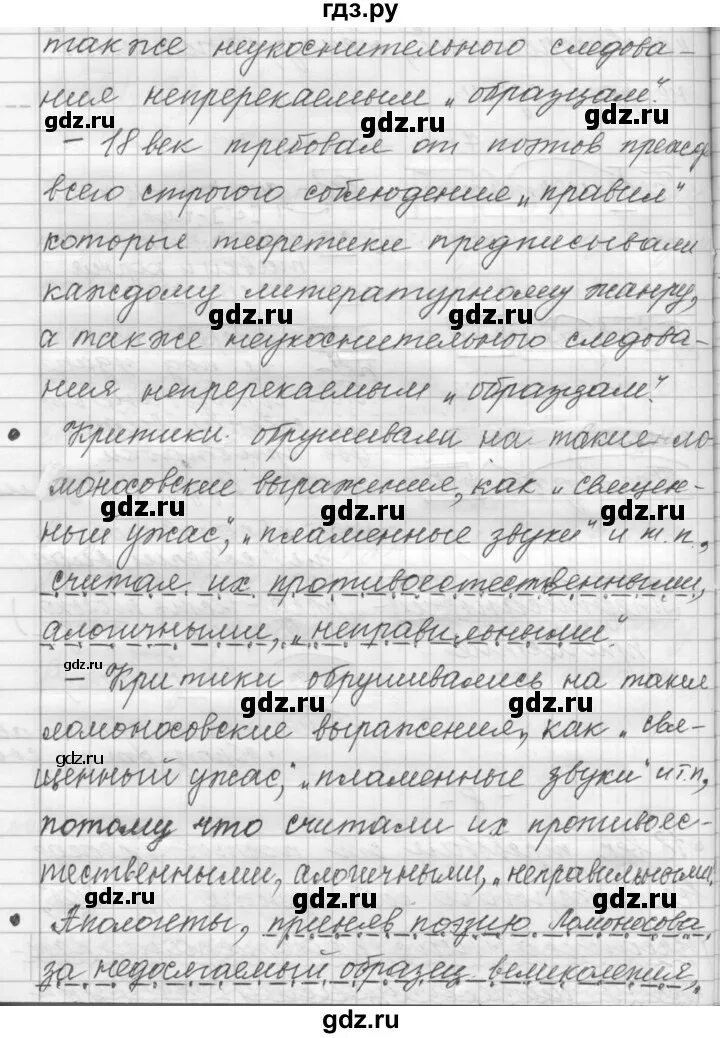 гдз.ру
также неукоснительного следова-
ния непререкаемым „образцам“.
gdz.ru gdz.ru gdz.ru
– 18 век требовал от поэтов прежде
всего строгого соблюдения „правил“
gdz.ru gdz.ru
которые теоретики предписывали
каждому литературному жанру,
gdz.ru gdz.ru
а также неукоснительного следова-
ния непререкаемым „образцам“.
gdz.ru gdz.ru
• Критики обрушивали на такие ло
моносовские выражения, как „священ-
gdz.ru gdz.ru
ный ужас“, „пламенные звуки“ и т.п.,
считая их противоестественными,
gdz.ru gdz.ru
алогичными, „неправильными“.
gdz.ru
– Критики обрушивались на такие
gdz.ru gdz.ru
ломоносовские выражения, как „свя-
gdz.ru
щенный ужас“, „пламенные звуки“ и т.п,
gdz.ru gdz.ru
потому что считали их противоес-
тественными, алогичными, „неправильными.
gdz.ru gdz.ru gdz.ru
• Апологеты, приняв поэзию Ломоносова,
за недосягаемый образец великолепия,
gdz.ru gdz.ru
gdz.ru